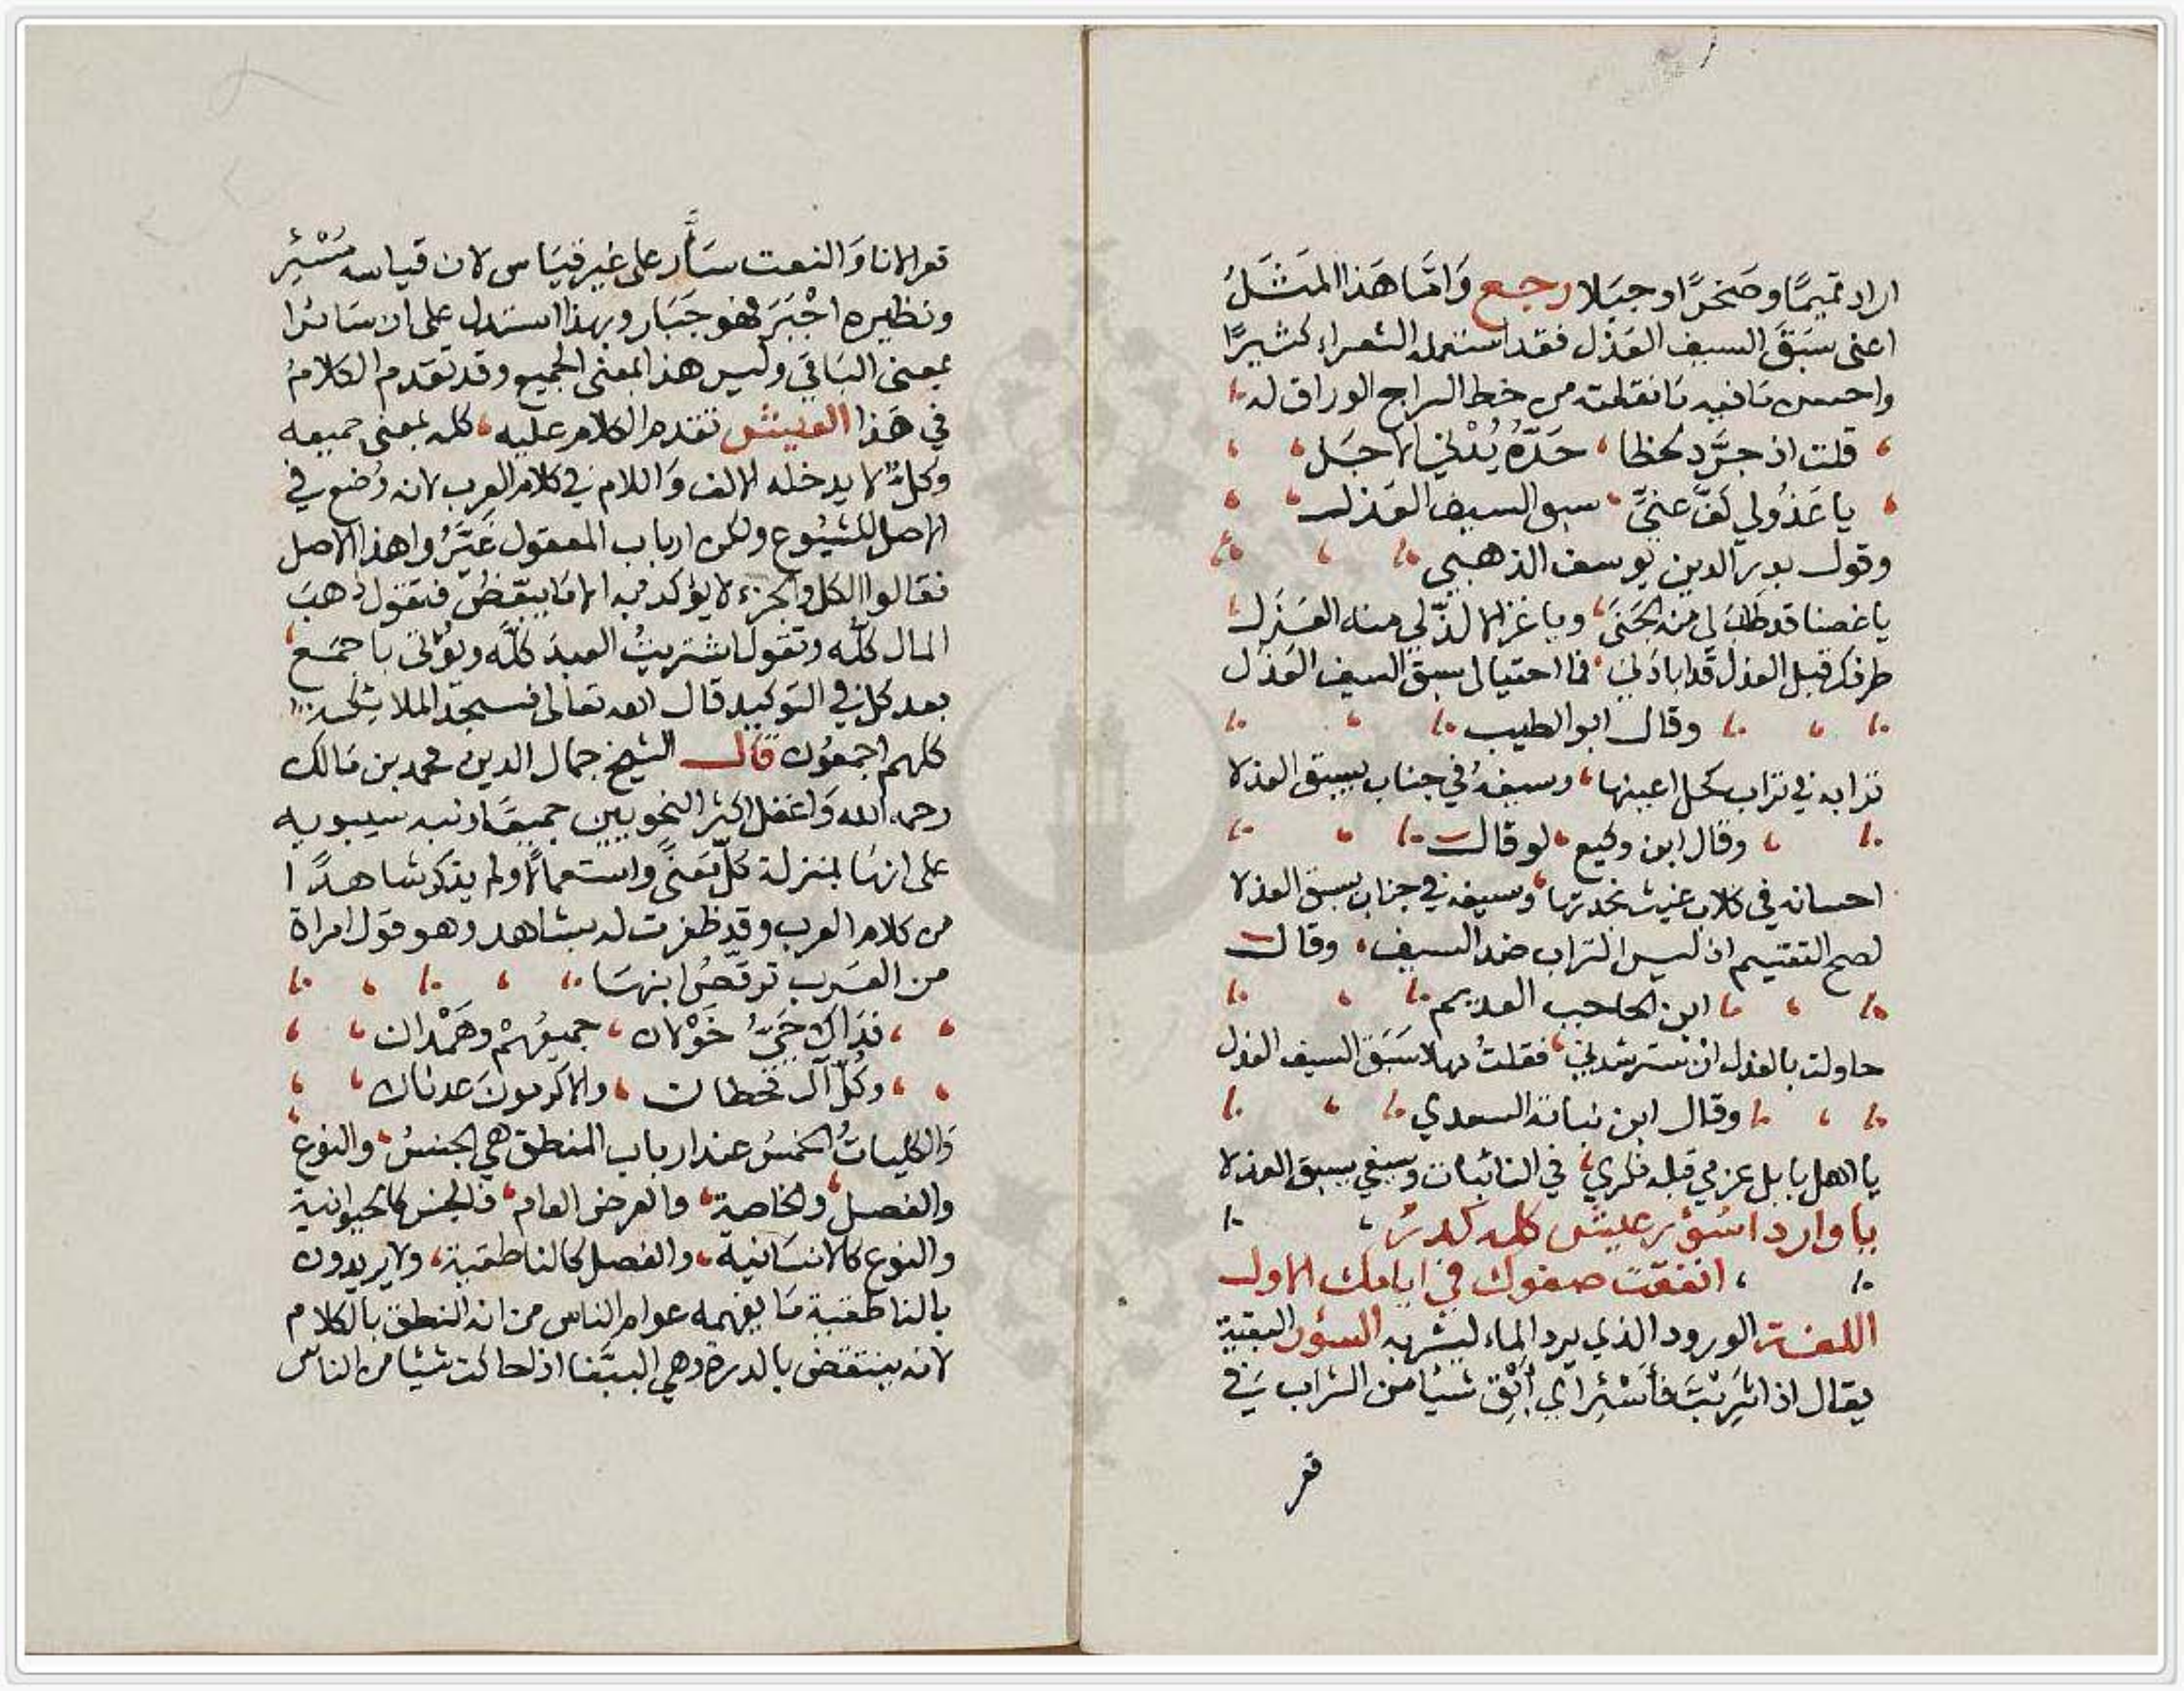 اراد تميمًا وصَخرًا وجبَلا رجع وَامَّا هَذا المَثَلُ
اعنى سَبَقَ السيف العَذَل فقد استعمله الشعراء كثيرًا
واحسن مَا فيه مَا نقلته من خط السراج الوراق له
قلت اذ جرَّد لحظا ، حَدّهُ يُدْني الاجَل
يا عَذُولي كَفَّ عنيَّ ، سبق السيف العذل
وقول بدر الدين يوسف الذهبي
يا غصنا قد طابَ لي منه الجَنىَ ، ويا غزالا لذّ لي منه الغَزَل
طرفك قبل العذل قد ابادَني ، فما احتيالى سبق السيف العَذَل
وقال ابو الطيب
ترابه في تراب كحل اعينها ، وسيفهُ في جناب يسبق العذلا
وقال ابن وكيع لو قال
احسانه في كلاب غيث نخدتها ، وسيفه في جناب يسبق العذلا
لصح التقسيم اذ ليس التراب ضد السيف ، وقال
ابن الحاجب العديم
حاولت بالعذل ان تسترشدني ، فقلتُ مهلا سَبَقَ السيف العذل
وقال ابن نباتة السعدي
يا اهل بابل عزمي قبله فكري ، في النائبات وسيفي يسبق العذلا
يا واردا سُؤر عيش كله كدرٌ ،
، انفقت صفوك في ايامك الاول
اللغة الورود الذي يرد الماء ليشربه السؤر البقية
يقال اذا شرِبْتَ فأَسْئِر اي أَبْقِ شيئا من الشراب في
قعر
قعر الانا وَالنعت سَأَّر على غير قيَاس لان قياسه مُسْئِر
ونظيره اجْبَرَ فهو جَبَّار وبهذا استدل على ان سَائرا
بمعنى البَاقي وليس هذا المعنى الجميع وقد تقدم الكلامُ
في هَذا العيش تقدم الكلام عليه ، كله بمعنى جميعه
وكلٌّ لا يدخله الالف وَاللام في كلام العرب لانه وُضع في
الاصل للشيُوع ولكن ارباب المعقول غيَّرُوا هذا الاصل
فقالوا الكل والجزء لا يؤكد به الا مَا يتبعّضُ فتقول ذهبَ
المال كلّه وتقول اشتريتُ العبدَ كلّه ويؤتى باجمَع
بعد كل في التوكيد قال الله تعالى فسجد الملائكة
كلهم اجمعُون قال الشيخ جمال الدين محمد بن مَالك
رحمه الله وَاغفل اكثر النحويين جميعًا ونبه سيبويه
على انها بمنزلة كلّ مَعنىً واستعمالًا ولم يذكر شاهدًا
من كلام العرب وقد ظفرت له بشاهد وهو قول امراة
من العَرب ترقّصُ ابنهَا
فدَاك حَيُّ خَوْلان ، جميعُهُمْ وهَمْدان
وكُلّ آل قحطان ، والاكرمونَ عدنان
وَالكلياتُ الخمسُ عند ارباب المنطق هي الجنسُ ، والنوع
والفصل ، والخاصة ، والعرض العام ، فالجنس كالحيوانية
والنوع كالانسَانية ، والفصل كالناطقية ، ولا يريدون
بالناطقية مَا يفهمه عوام الناس من انه النطق بالكلام
لانه ينتقض بالدرة وهي الببّغا اذا حاكت شيئا من الناس